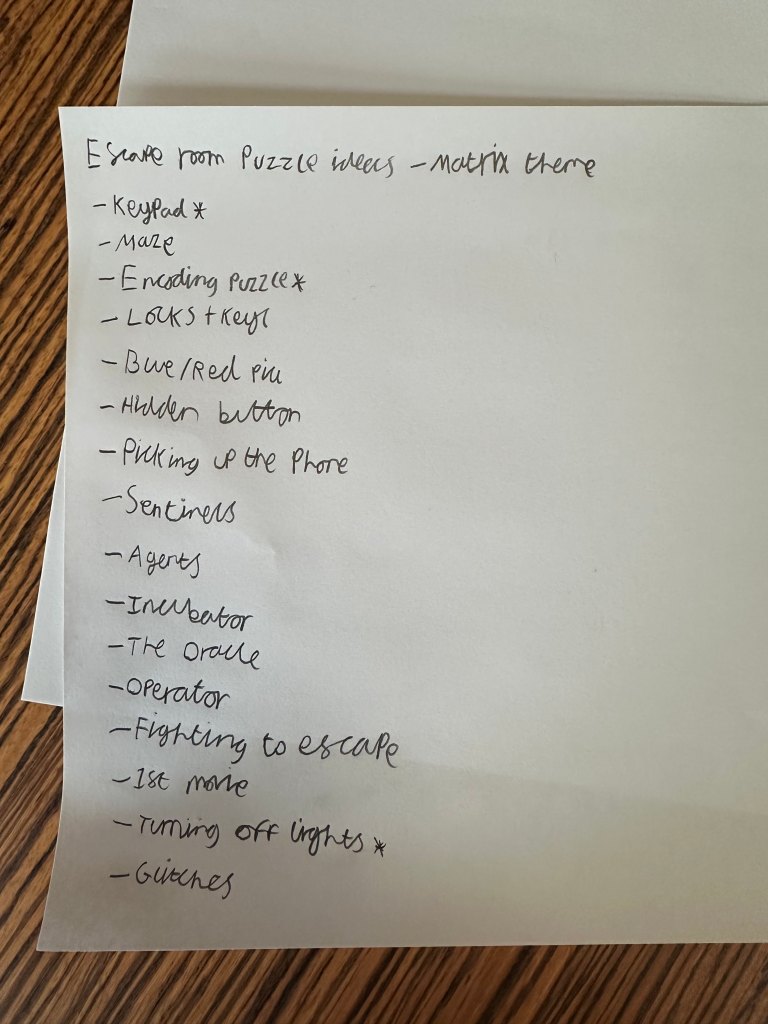 Escape room Puzzle ideas - Matrix theme
- Keypad *
- Maze
- Encoding puzzle *
- Locks + Keys
- Blue/Red pill
- Hidden button
- Picking up the Phone
- Sentinels
- Agents
- Incubator
- The Oracle
- Operator
- Fighting to escape
- 1st movie
- Turning off lights *
- Glitches